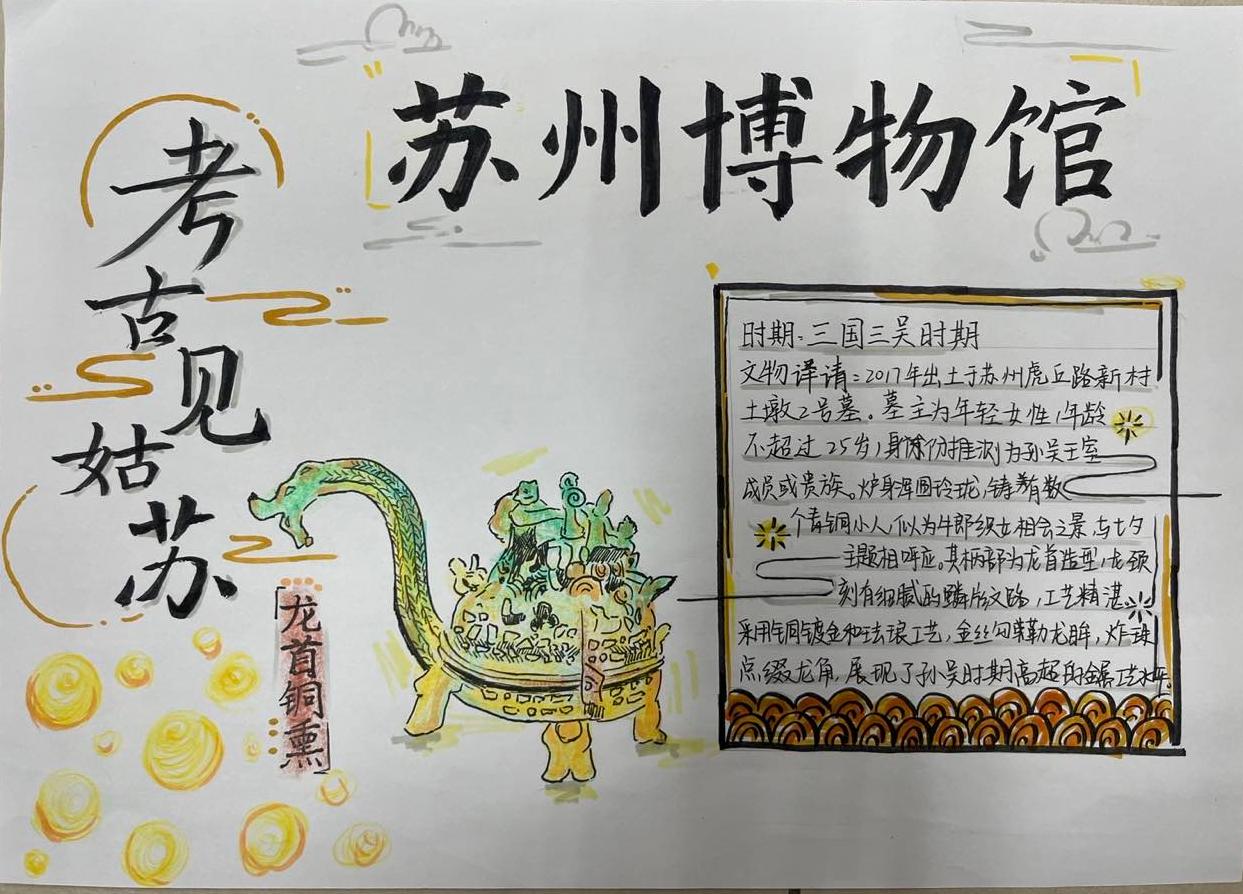 苏州博物馆
考古见姑苏
「龙首铜熏」
时期：三国三吴时期
文物译请：2017年出土于苏州虎丘路新村
土墩2号墓。墓主为年轻女性，年龄
不超过25岁，身份推测为孙吴王室
成员或贵族。炉身浑圆玲珑，铸有数
个青铜小人，似为牛郎织女相会之景，与七夕
主题相呼应。其柄部为龙首造型，龙颈
刻有细腻的鳞片纹路，工艺精湛。
采用铜镀金和珐琅工艺，金丝勾勒龙眸，
点缀龙角，展现了孙吴时期高超的金属工艺水平。